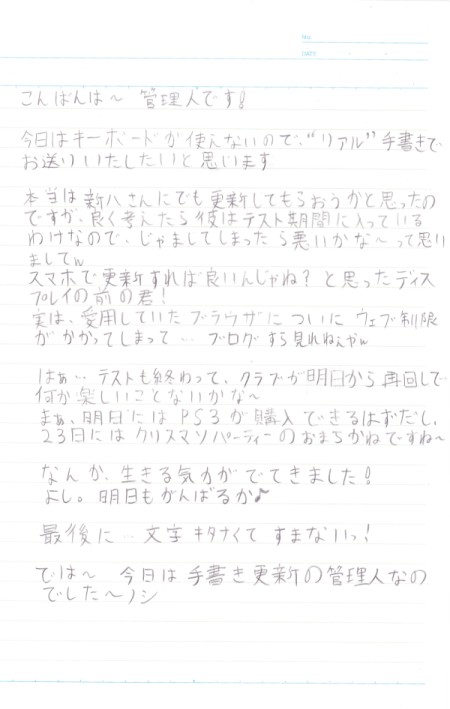 No.
DATE
こんばんは～ 管理人です!
今日はキーボードが使えないので、"リアル"手書きで
お送りいたしたいと思います
本当は新八さんにでも更新してもらおうかと思ったの
ですが、良く考えたら彼はテスト期間に入っている
わけなので、じゃましてしまったら悪いかな～って思い
ましてw
スマホで更新すれば良いんじゃね? と思ったディス
プレイの前の君!
実は、愛用していたブラウザについにウェブ制限
がかかってしまって… ブログすら見れねぇやw
はぁ… テストも終わって、クラブが明日から再回して
何か楽しいことないかな～
まぁ、明日にはPS3が購入できるはずだし、
23日にはクリスマスパーティーのおまちかねですね～
なんか、生きる気力がでてきました!
よし。明日もがんばるか♪
最後に… 文字キタナくてすまないっ!
では～ 今日は手書き更新の管理人なの
でした～ノシ